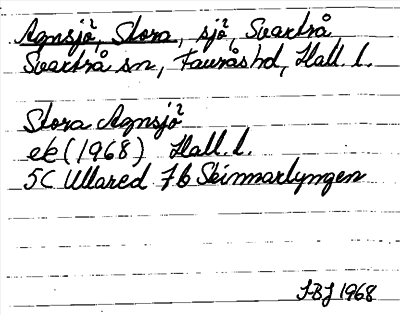 Agnsjö, Stora, sjö, Svartrå
Svartrå sn, Faurås hd, Hall. l.
Stora Agnsjö
ek (1968) Hall. l.
5C Ullared 7b Skinnarlyngen
JBJ 1968